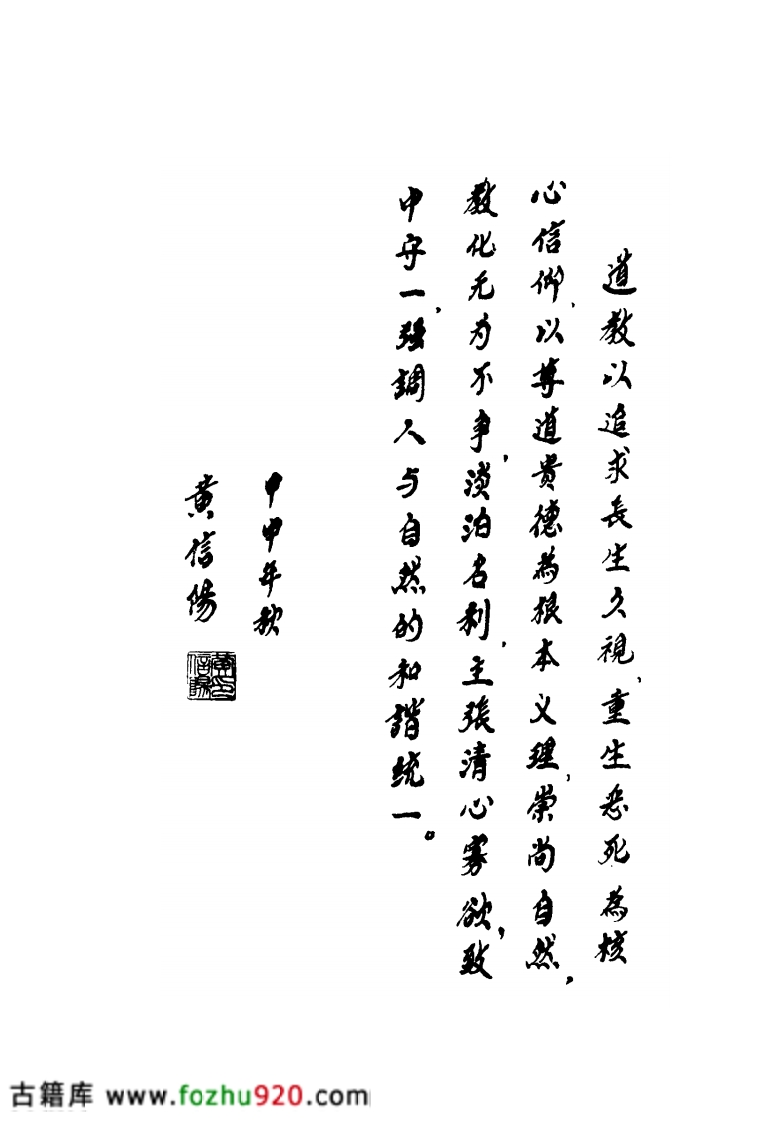 道教以追求長生久視、重生恶死為核
心信仰，以尊道貴德為根本义理，崇尚自然，
教化无为不争，淡泊名利，主張清心寡欲，致
中守一，强調人与自然的和諧统一。
甲申年秋
黄信陽
黄印信陽
古籍库 www.fozhu920.com